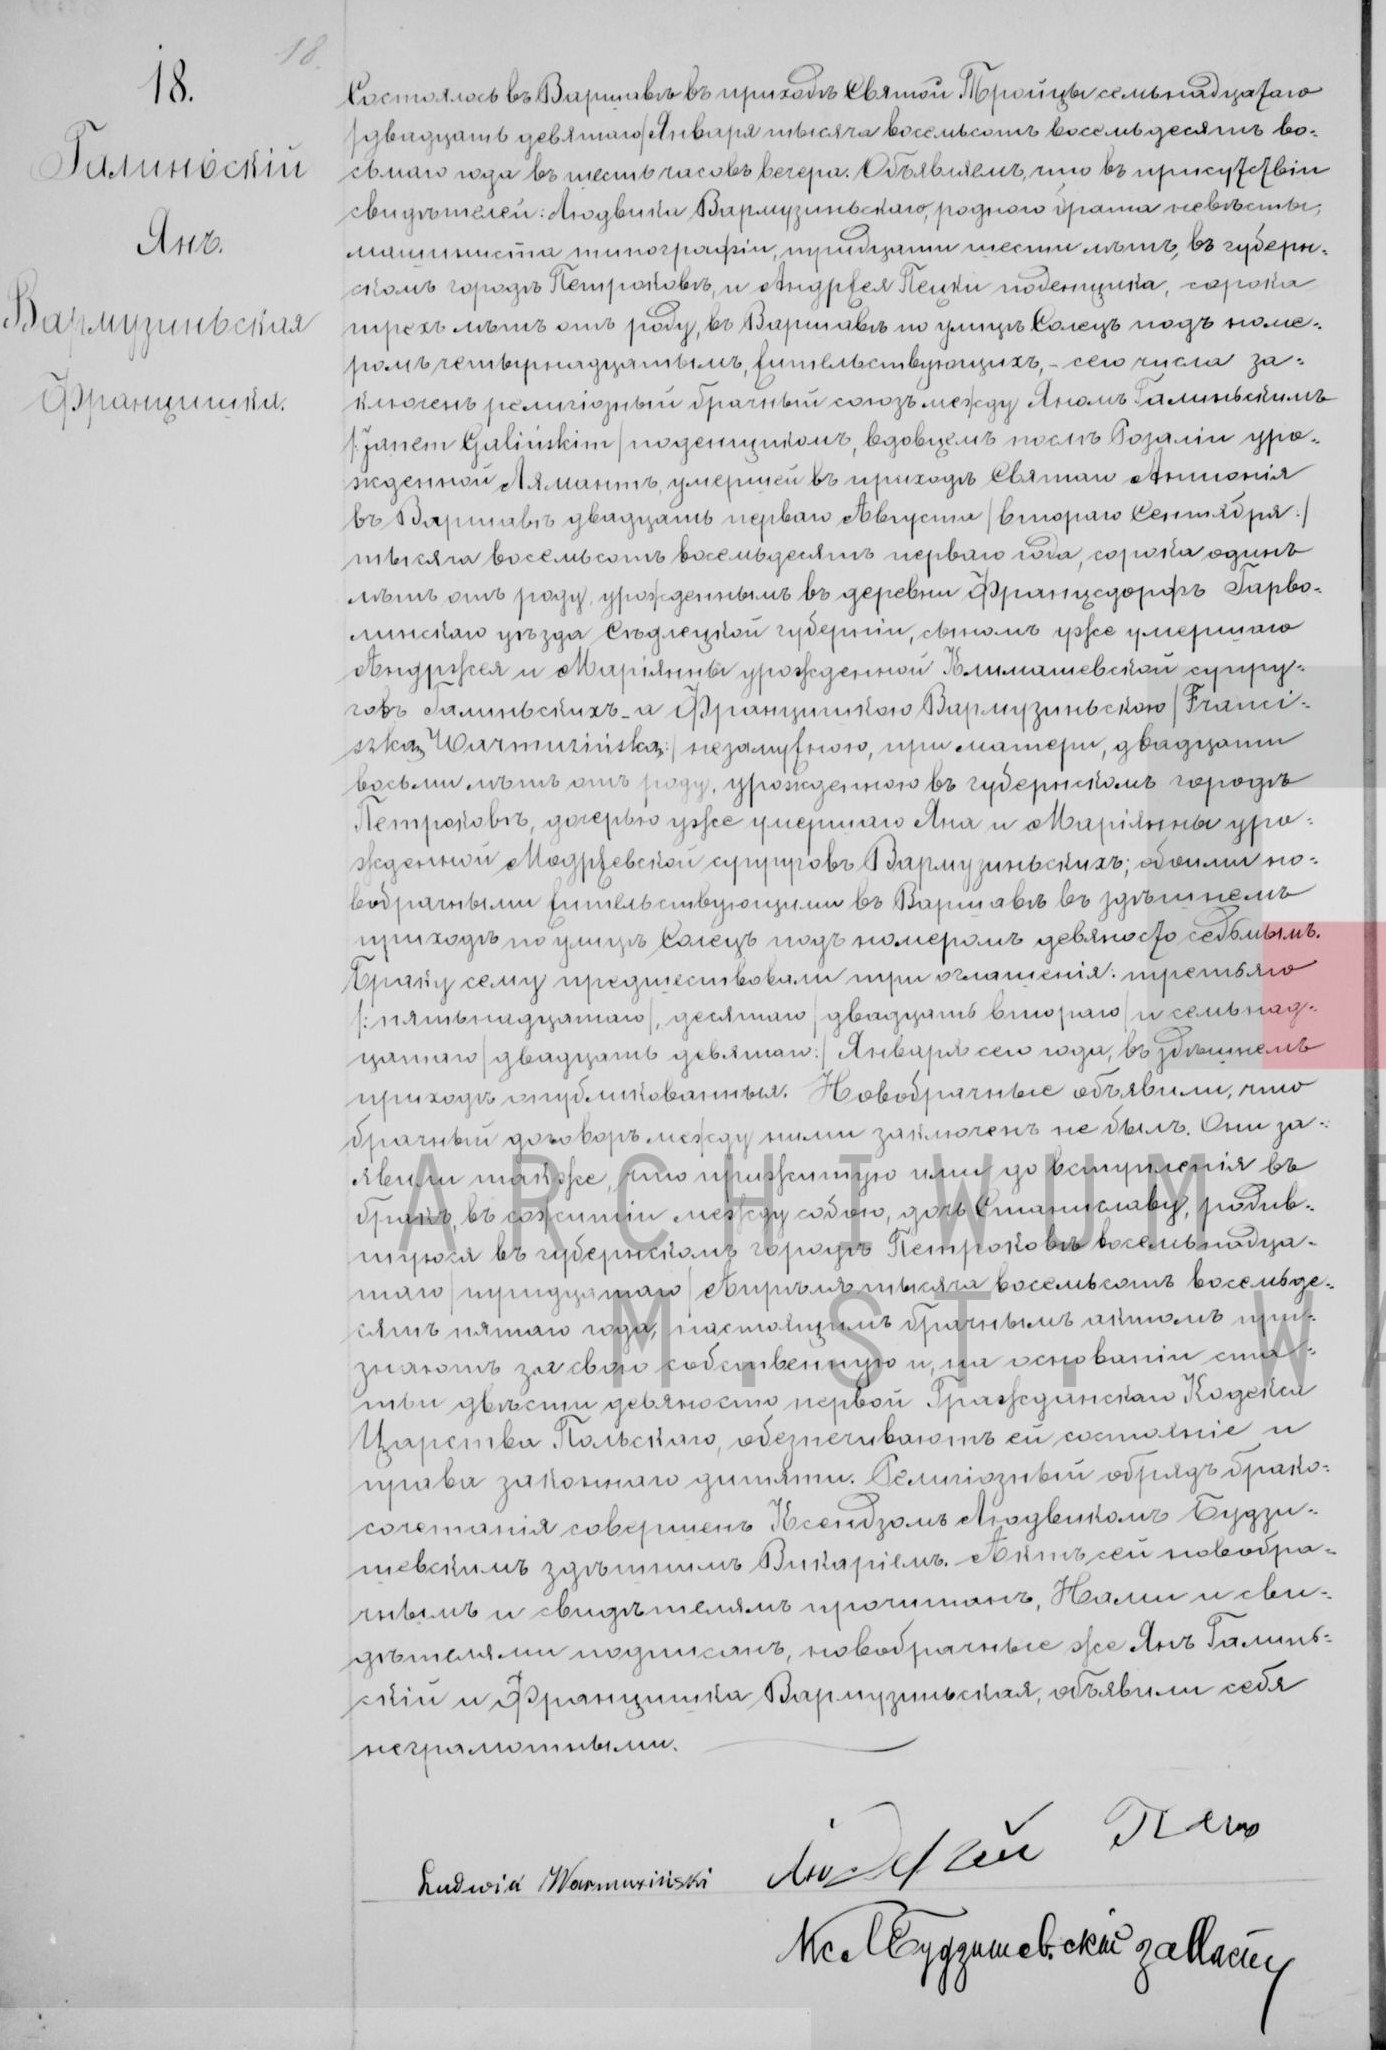 18.
18.
Галиньскій
Янъ.
Вармузиньская
Францишка.
Состоялось въ Варшавѣ въ приходѣ Святой Тройцы семьнадцатаго
/двадцать девятаго/ Января тысяча восемьсотъ восемьдесятъ во-
сьмаго года въ шесть часовъ вечера. Объявляемъ, что въ присутствіи
свидѣтелей: Людвика Вармузиньскаго, родного брата невѣсты,
машиниста типографіи, тридцати шести лѣтъ, въ губерн-
скомъ городѣ Петроковѣ, и Андржея Пецки поденщика, сорока
трехъ лѣтъ отъ роду, въ Варшавѣ по улицѣ Солецъ подъ номе-
ромъ четырнадцатымъ, жительствующихъ, - сего числа за-
ключенъ религіозный брачный союзъ между Яномъ Галиньскимъ
/:Janem Galińskim/ поденщикомъ, вдовцемъ послѣ Розаліи уро-
жденной Лямантъ, умершей въ приходѣ Святаго Антонія
въ Варшавѣ двадцать перваго Августа /втораго Сентября:/
тысяча восемьсотъ восемьдесятъ перваго года, сорока одинъ
лѣтъ отъ роду, урожденнымъ въ деревни Францсдорфъ Гарво-
линскаго уѣзда Сѣдлецкой губерніи, сыномъ уже умершаго
Андржея и Маріянны урожденной Климашевской супру-
говъ Галиньскихъ - а Францишкою Вармузиньскою /Franci-
szką Warmuzińską:/ незамужною, при матери, двадцати
восьми лѣтъ отъ роду, урожденною въ губернскомъ городѣ
Петроковѣ, дочерью уже умершаго Яна и Маріянны уро-
жденной Модржевской супруговъ Вармузиньскихъ; обоими но-
вобрачными жительствующими въ Варшавѣ въ здѣшнемъ
приходѣ по улицѣ Солецъ подъ номеромъ девяносто седьмымъ.
Браку сему предшествовали три оглашенія: третьяго
/:пятьнадцатаго/, десятаго /двадцать втораго/ и семьнад-
цатаго /двадцать девятаго:/ Января сего года, въ здѣшнемъ
приходѣ опубликованныя. Новобрачные объявили, что
брачный договоръ между ними заключенъ не былъ. Они за-
явили также, что прижитую ими до вступленія въ
бракъ, въ сожитіи между собою, дочь Станиславу, родив-
шуюся въ губернскомъ городѣ Петроковѣ восемьнадца-
таго /тридцатаго/ Апрѣля тысяча восемьсотъ восемьде-
сятъ пятаго года, настоящимъ брачнымъ актомъ при-
знаютъ за свою собственную и, на основаніи ста-
тьи двѣсти девяносто первой Гражданскаго Кодекса
Царства Польскаго, обезпечиваютъ ей состояніе и
права законнаго дитяти. Религіозный обрядъ брако-
сочетанія совершенъ Ксендзомъ Людвикомъ Будзи-
шевскимъ здѣшнимъ Викаріемъ. Актъ сей новобра-
чнымъ и свидѣтелямъ прочитанъ, Нами и сви-
дѣтелями подписанъ, новобрачные же Янъ Галинь-
скій и Францишка Вармузиньская, объявили себя
неграмотными.
Ludwik Warmuziński
Кс Л Будзишевскій
ARCHIWUM
M ST WA